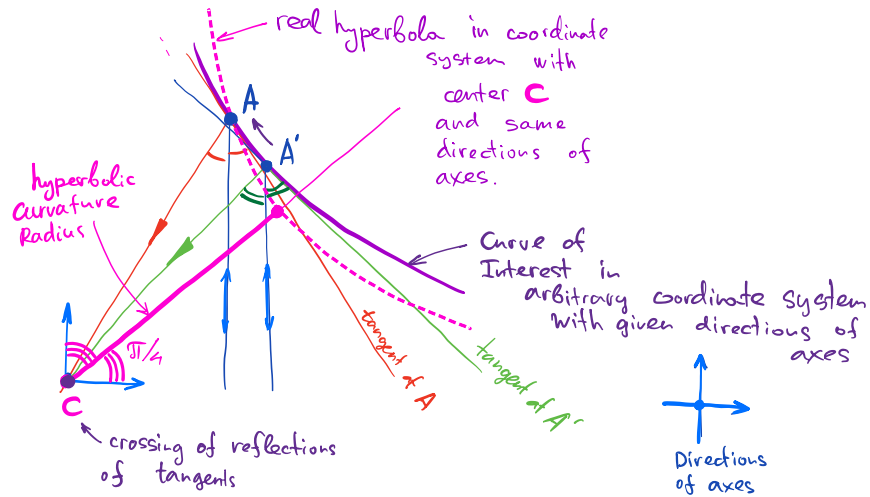 real hyperbola in coordinate
system with
center C
and same
directions of
axes.
A
A'
hyperbolic
Curvature
Radius
Curve of
Interest in
arbitrary coordinate system
with given directions of
axes
π/4
tangent at A
tangent at A'
C
crossing of reflections
of tangents
Directions
of axes